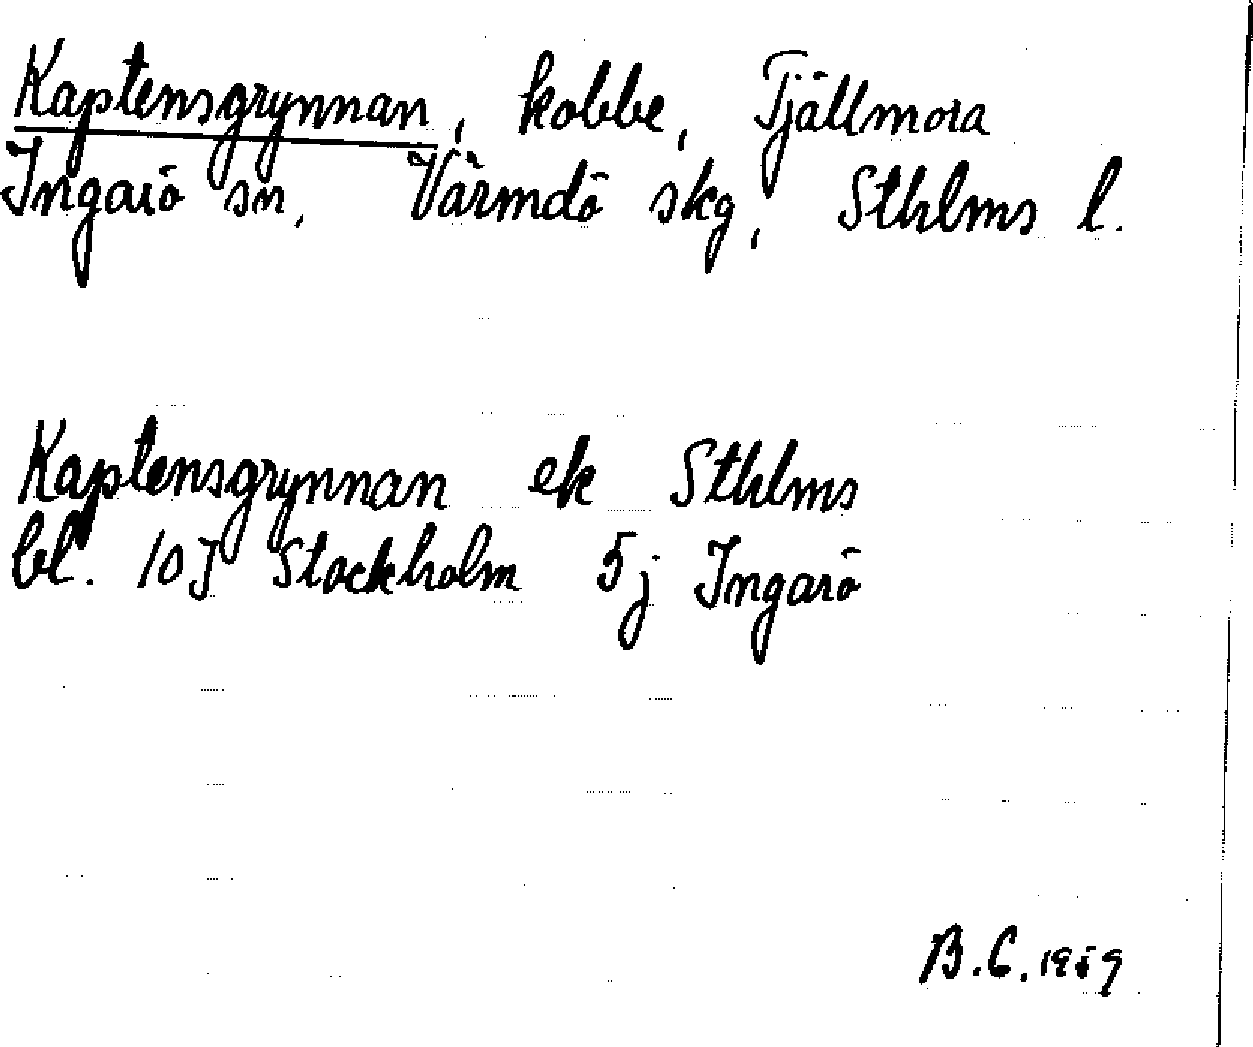 Kaptensgrynnan, kobbe, Tjällmora
Ingarö sn, Värmdö skg, Sthlms l.
Kaptensgrynnan ek Sthlms
bl. 10J Stockholm 5j Ingarö
B.C. 1959